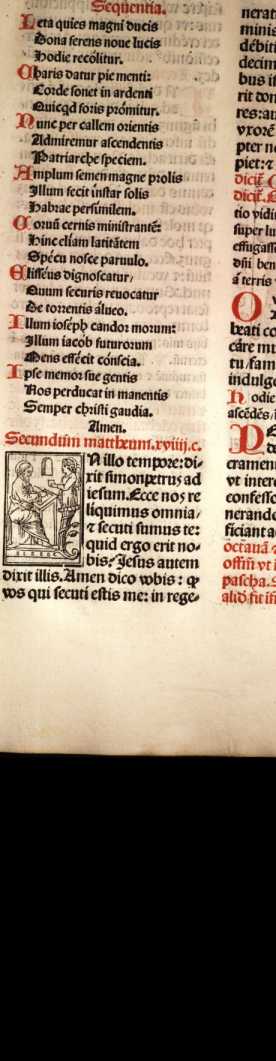 Sequentia.
Leta quies magni ducis
Dona ferens noue lucis
Hodie recolitur.
Charis datur pie menti:
Corde sonet in ardenti
Quicqd foris prómitur.
Nunc per callem orientis
Admiremur ascendentis
Patriarche speciem.
Amplum semen magne prolis
Illum fecit instar solis
Habrae persimilem.
Coruũ cernis ministrantẽ:
Hinc eliam latitãtem
Specu nosce paruulo.
Eliseus dignoscatur,
Quum securis reuocatur
De torrentis alueo.
Illum ioseph candor morum:
Illum iacob futurorum
Mens effecit conscia.
Ipse memor sue gentis
Nos perducat in manentis
Semper christi gaudia.
Amen.
Secundum mattheum.xviiij.c.
IN illo tempore: di-
xit simonpetrus ad
iesum. Ecce nos re
liquimus omnia,
⁊ secuti sumus te:
quid ergo erit no-
bis? Jesus autem
dixit illis. Amen dico vobis : ꝙ
vos qui secuti estis me: in rege-
nerat
minis
débiti
decim
bus is
rit dom
res: au
vxorẽ
pter no
piet: ⁊
dicit̃. C
dicit̃. E
tio vidi
super lu
effugasse
dñi ben
á terris
beati co
cáre mu
tu, fam
indulge
Hodie
ascédẽs,
DE
cramen
vt interc
confesso
nerando
ficiant ad
octauã
offiñ vt i
pascha. S
aliõ fit in